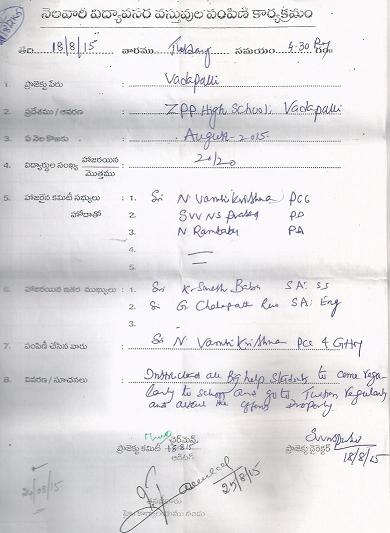 నెలవారీ విద్యావసర వస్తువుల పంపిణీ కార్యక్రమం
తేది 18/8/15 వారము Tuesday సమయం 4-30 Pm గం
1. ప్రాజెక్టు పేరు Vadapalli
2. ప్రదేశము / ఆవరణ ZPP High School, Vadapalli
3. ఏ నెల కొఱకు August-2015.
4. విద్యార్థుల సంఖ్య హాజరయిన / మొత్తము 20/20
5. హాజరైన కమిటీ సభ్యులు 1. Sri N Vamsi Krishna PCC
హోదాతో 2. SVV NS Prasad PD
3. N Rambabu PA
4.
5.
6. హాజరయిన ఇతర ముఖ్యులు 1. Sri K. Suresh Babu SA: SS
2. Sri G Chalapati Rao SA: Eng
3.
7. పంపిణీ చేసిన వారు Sri N Vamsi Krishna PCC &
8. వివరణ / సూచనలు Instructed all Big help students to come regu-
larly to school and go to Tuition regularly
and the properly.
ఛైర్మెన్,
ప్రాజెక్టు కమిటీ 18/8/15 ప్రాజెక్టు డైరెక్టర్
ఆడిటర్ 18/8/15
25/8/15